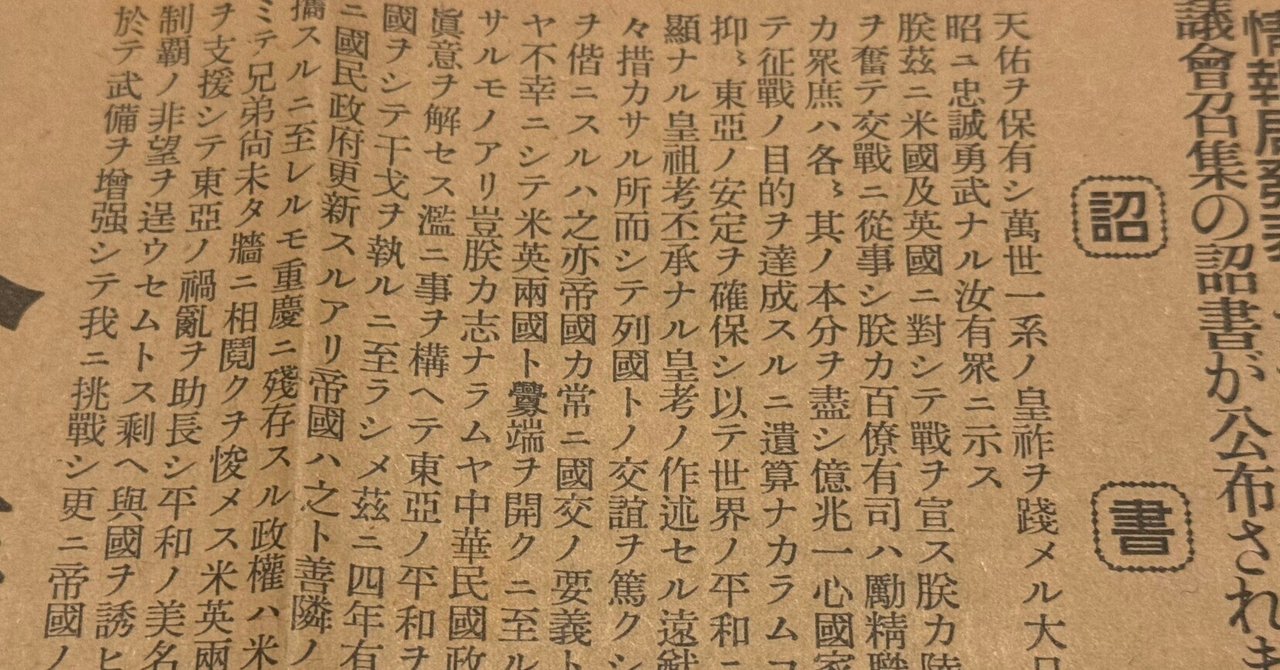 議會召集の詔書が公布されま
詔書
天佑ヲ保有シ萬世一系ノ皇祚ヲ踐メル大日
昭ニ忠誠勇武ナル汝有眾ニ示ス
朕茲ニ米國及英國ニ對シテ戰ヲ宣ス朕カ陸
ヲ奮テ交戰ニ從事シ朕カ百僚有司ハ勵精
カ眾庶ハ各〻其ノ本分ヲ盡シ億兆一心國家
テ征戰ノ目的ヲ達成スルニ遺算ナカラムコ
抑〻東亞ノ安定ヲ確保シ以テ世界ノ平和ニ
顯ナル皇祖考不承ナル皇考ノ作述セル遠猷
々措カサル所而シテ列國トノ交誼ヲ篤クシ
ヲ偕ニスルハ之亦帝國カ常ニ國交ノ要義ト
ヤ不幸ニシテ米英兩國ト釁端ヲ開クニ至ル
サルモノアリ豈朕カ志ナラムヤ中華民國政
眞意ヲ解セス濫ニ事ヲ構ヘテ東亞ノ平和ヲ
國ヲシテ干戈ヲ執ルニ至ラシメ茲ニ四年有
ニ國民政府更新スルアリ帝國ハ之ト善隣ノ
攜スルニ至レルモ重慶ニ殘存スル政權ハ米
ミテ兄弟尚未タ牆ニ相鬩クヲ悛メス米英兩
ヲ支援シテ東亞ノ禍亂ヲ助長シ平和ノ美名
制覇ノ非望ヲ逞ウセムトス剩ヘ與國ヲ誘ヒ
於テ武備ヲ增强シテ我ニ挑戰シ更ニ帝國ノ